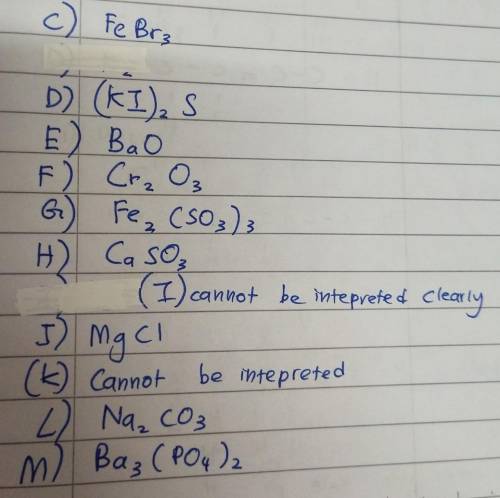 C) FeBr₃
D) (KI)₂ S
E) BaO
F) Cr₂ O₃
G) Fe₂ (SO₃)₃
H) CaSO₃
(I) cannot be intepreted clearly
J) MgCl
(K) Cannot be intepreted
L) Na₂ CO₃
M) Ba₃ (PO₄)₂